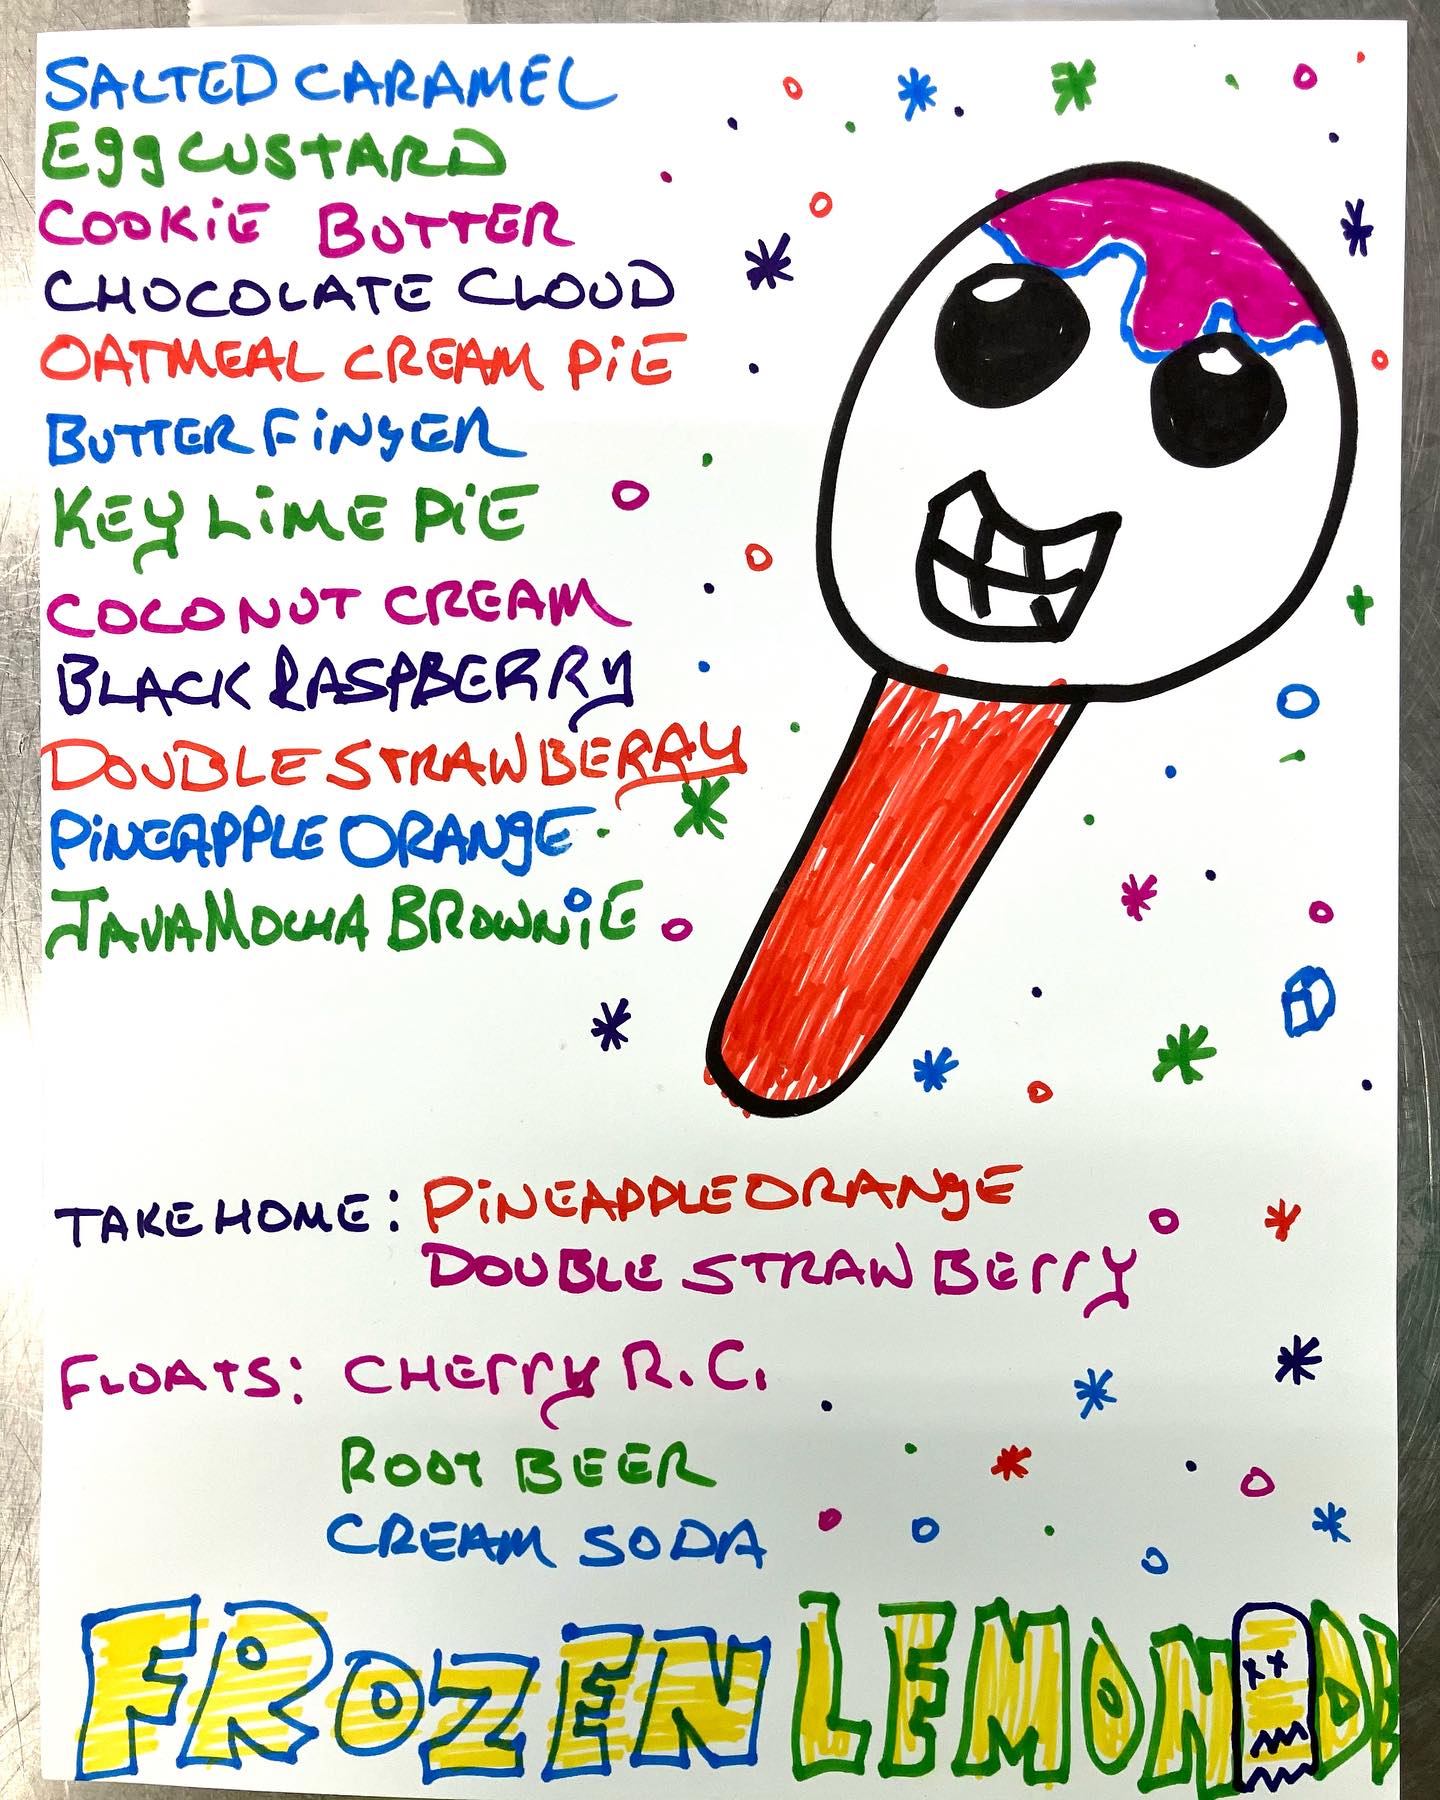 SALTED CARAMEL
Egg CUSTARD
COOKiE BUTTER
CHOCOLATE CLOUD
OATMEAL CREAM PiE
BUTTERFiNgER
KEy LiME PiE
COCONUT CREAM
BLACK RASPBERRy
DOUBLE STRAWBERRY
PiNEAPPLE ORANgE
JAVA MOCHA BROWNiE
TAKE HOME: PiNEAPPLE ORANgE
DOUBLE STRAWBErry
FLOATS: CHErry R.C.
ROOT BEER
CREAM SODA
FROZEN LEMONADE